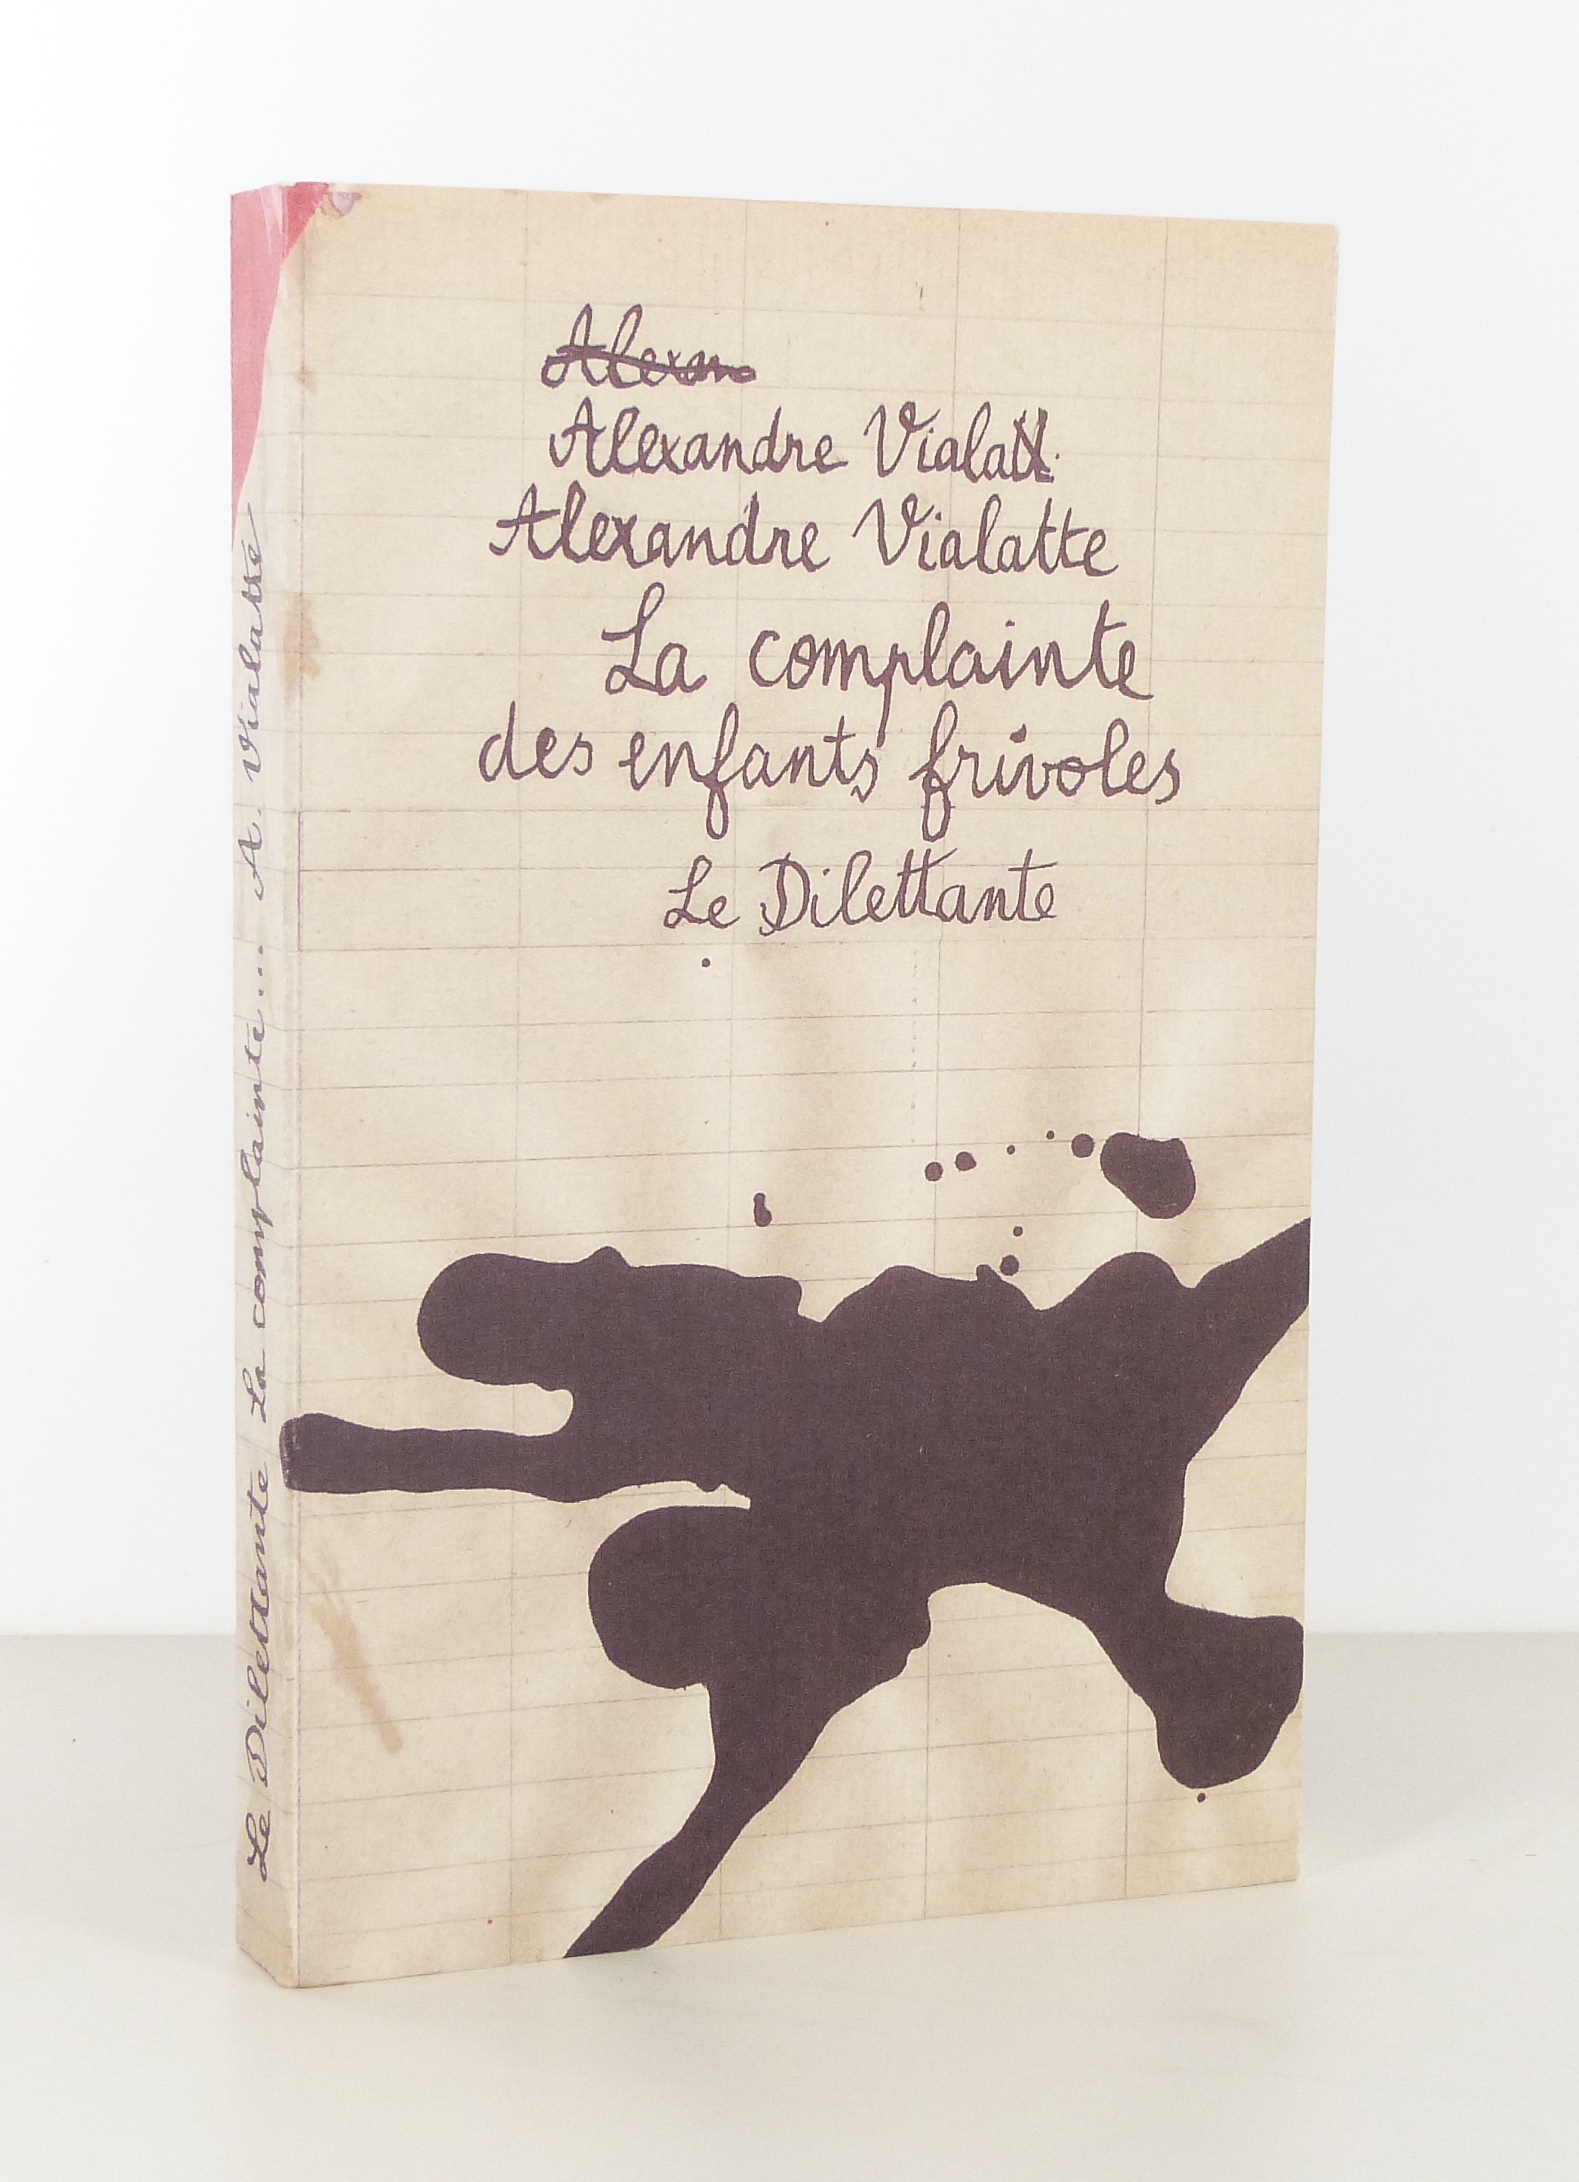 Alexan
Alexandre Vialatt.
Alexandre Vialatte
La complainte
des enfants frivoles
Le Dilettante
Le Dilettante La complainte... A. Vialatte